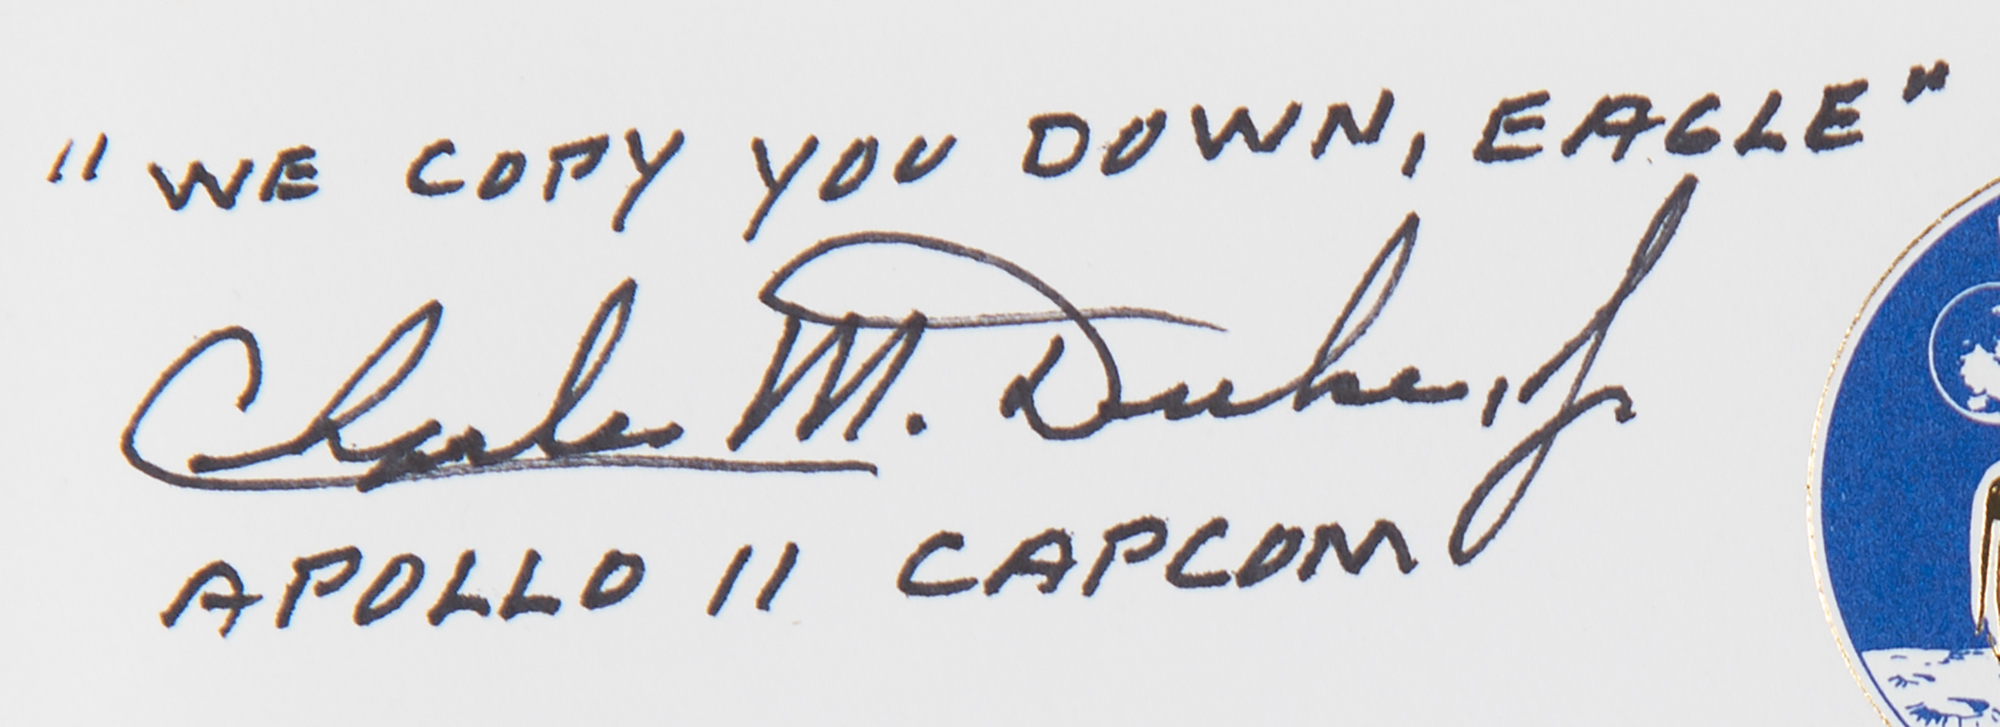 "WE COPY YOU DOWN, EAGLE"
Charles M. Duke, Jr
APOLLO 11 CAPCOM